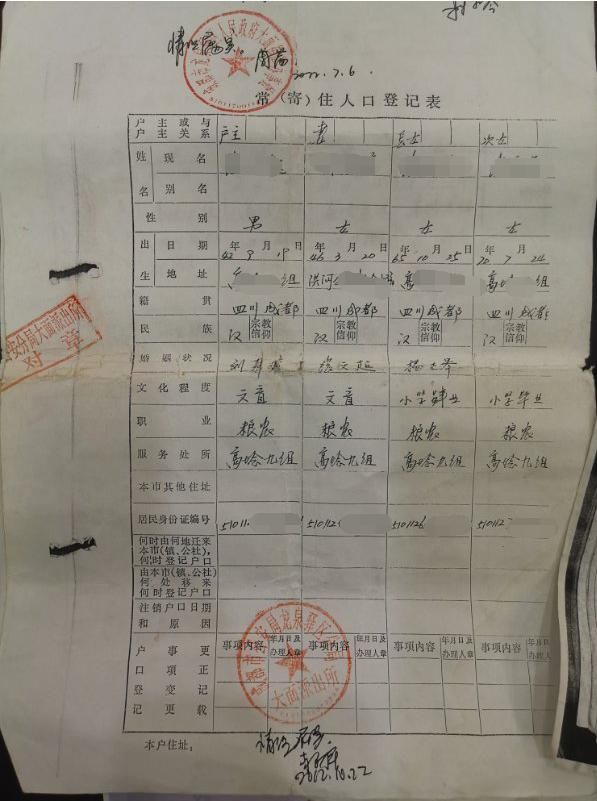 情况属实
2022.7.6
常（寄）住人口登记表
户主或与户主关系 户主 妻 长女 次女
姓名 现名
别名
性别 男 女 女 女
出生 日期 42年9月19日 46年3月20日 65年10月25日 70年7月24日
地址 组 洪河 高 高 组
籍贯 四川成都 四川成都 四川成都 四川成都
民族 汉 宗教信仰 汉 宗教信仰 汉 宗教信仰 汉 宗教信仰
婚姻状况
文化程度 文盲 文盲 小学毕业 小学毕业
职业 粮农 粮农 粮农 粮农
服务处所 高埝九组 高埝九组 高埝九组 高埝九组
本市其他住址
居民身份证编号 51011 510112 5101126 510112
何时由何地迁来本市（镇、公社），何时登记户口
由本市（镇、公社）何处移来何时登记户口
注销户口日期和原因
户口登记事项变更更正记载 事项内容 年月日及办理人章 事项内容 年月日及办理人章 事项内容 年月日及办理人章 事项内容 年月日及办理人章
本户住址：
分局大面派出所
对章
龙泉驿区
大面派出所
情况属实
2022.10.22